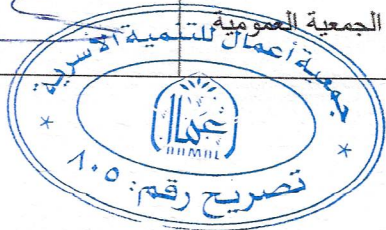 الجمعية العمومية
جمعية أعمال للتنمية الأسرية
أعمال
AAMAL
تصريح رقم: ٨٠٥